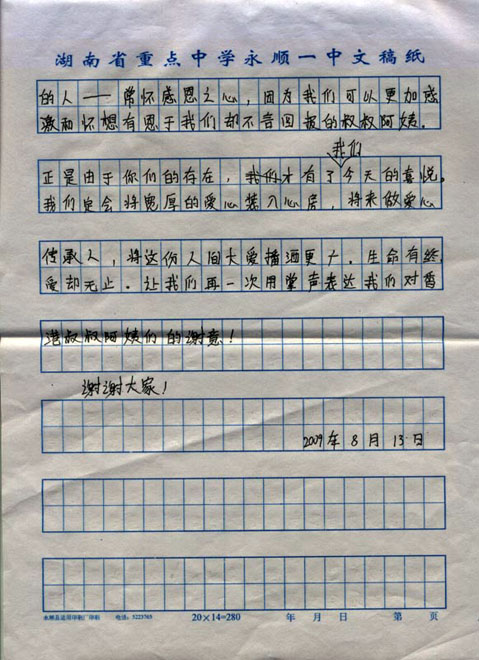 湖南省重点中学永顺一中文稿纸
的人——常怀感恩之心，因为我们可以更加感
激和怀想有恩于我们却不言回报的叔叔阿姨．
我们
正是由于你们的存在，才有了今天的喜悦。
我们定会将宽厚的爱心装入心房，将来做爱心
传承人，将这份人间大爱播洒更广．生命有终，
爱却无止．让我们再一次用掌声表达我们对香
港叔叔阿姨们的谢意！
谢谢大家！
2009年8月13日
20×14=280 年 月 日 第 页